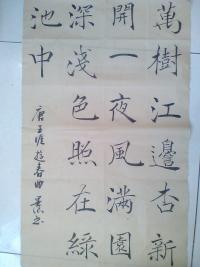 萬樹江邊杏新
開一夜風滿園
深淺色照在綠
池中
唐王涯遊春曲